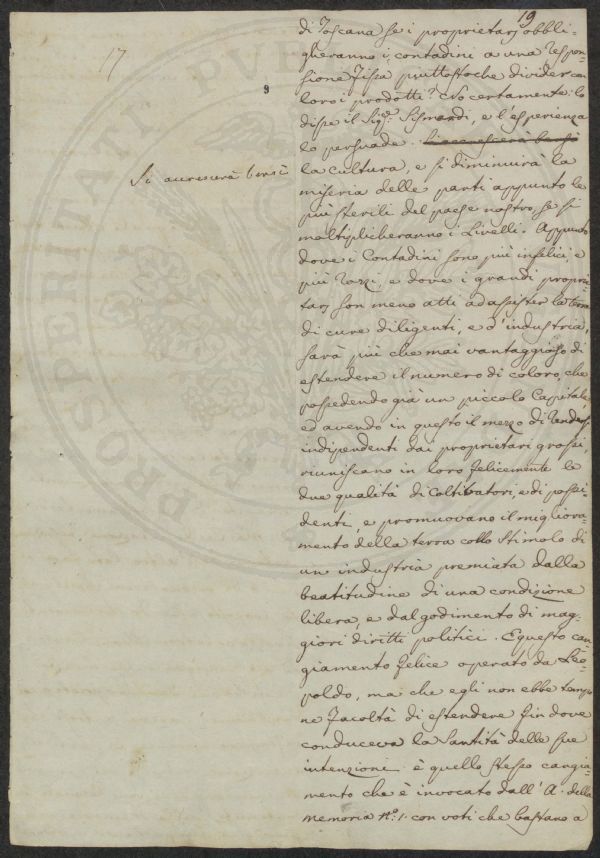 19
17
di Toscana se i proprietarj obbli-
gheranno i contadini a una respon-
sione fissa piuttostoche divider con
loro i prodotti? No certamente: lo
disse il Sigr. Sismondi, e l'esperienza
lo persuade. Si accrescerà bensì
Si accrescerà bensì
la cultura, e si diminuirà la
miseria delle parti appunto le
più sterili del paese nostro, se si
moltiplicheranno i Livelli. Appunto
dove i Contadini sono più infelici, e
più rozzi, e dove i grandi proprie-
tarj son meno atti ad assister la terra
di cure diligenti, e d'industria,
sarà più che mai vantaggioso di
estendere il numero di coloro, che
possedendo già un piccolo Capitale,
ed avendo in questo il mezzo di rendersi
indipendenti dai proprietari grossi,
riuniscano in loro felicemente le
due qualità di Coltivatori, e di possi-
denti, e promuovano il migliora-
mento della terra collo stimolo di
un industria premiata dalla
beatitudine di una condizione
libera, e dal godimento di mag-
giori diritti politici. E questo can-
giamento felice operato da Leo-
poldo, ma che egli non ebbe tempo
ne facoltà di estendere fin dove
conduceva la Santità delle sue
intenzioni è quello stesso cangia-
mento che è invocato dall'A. della
memoria No. 1. con voti che bastano a
PROSPERITAT PVB